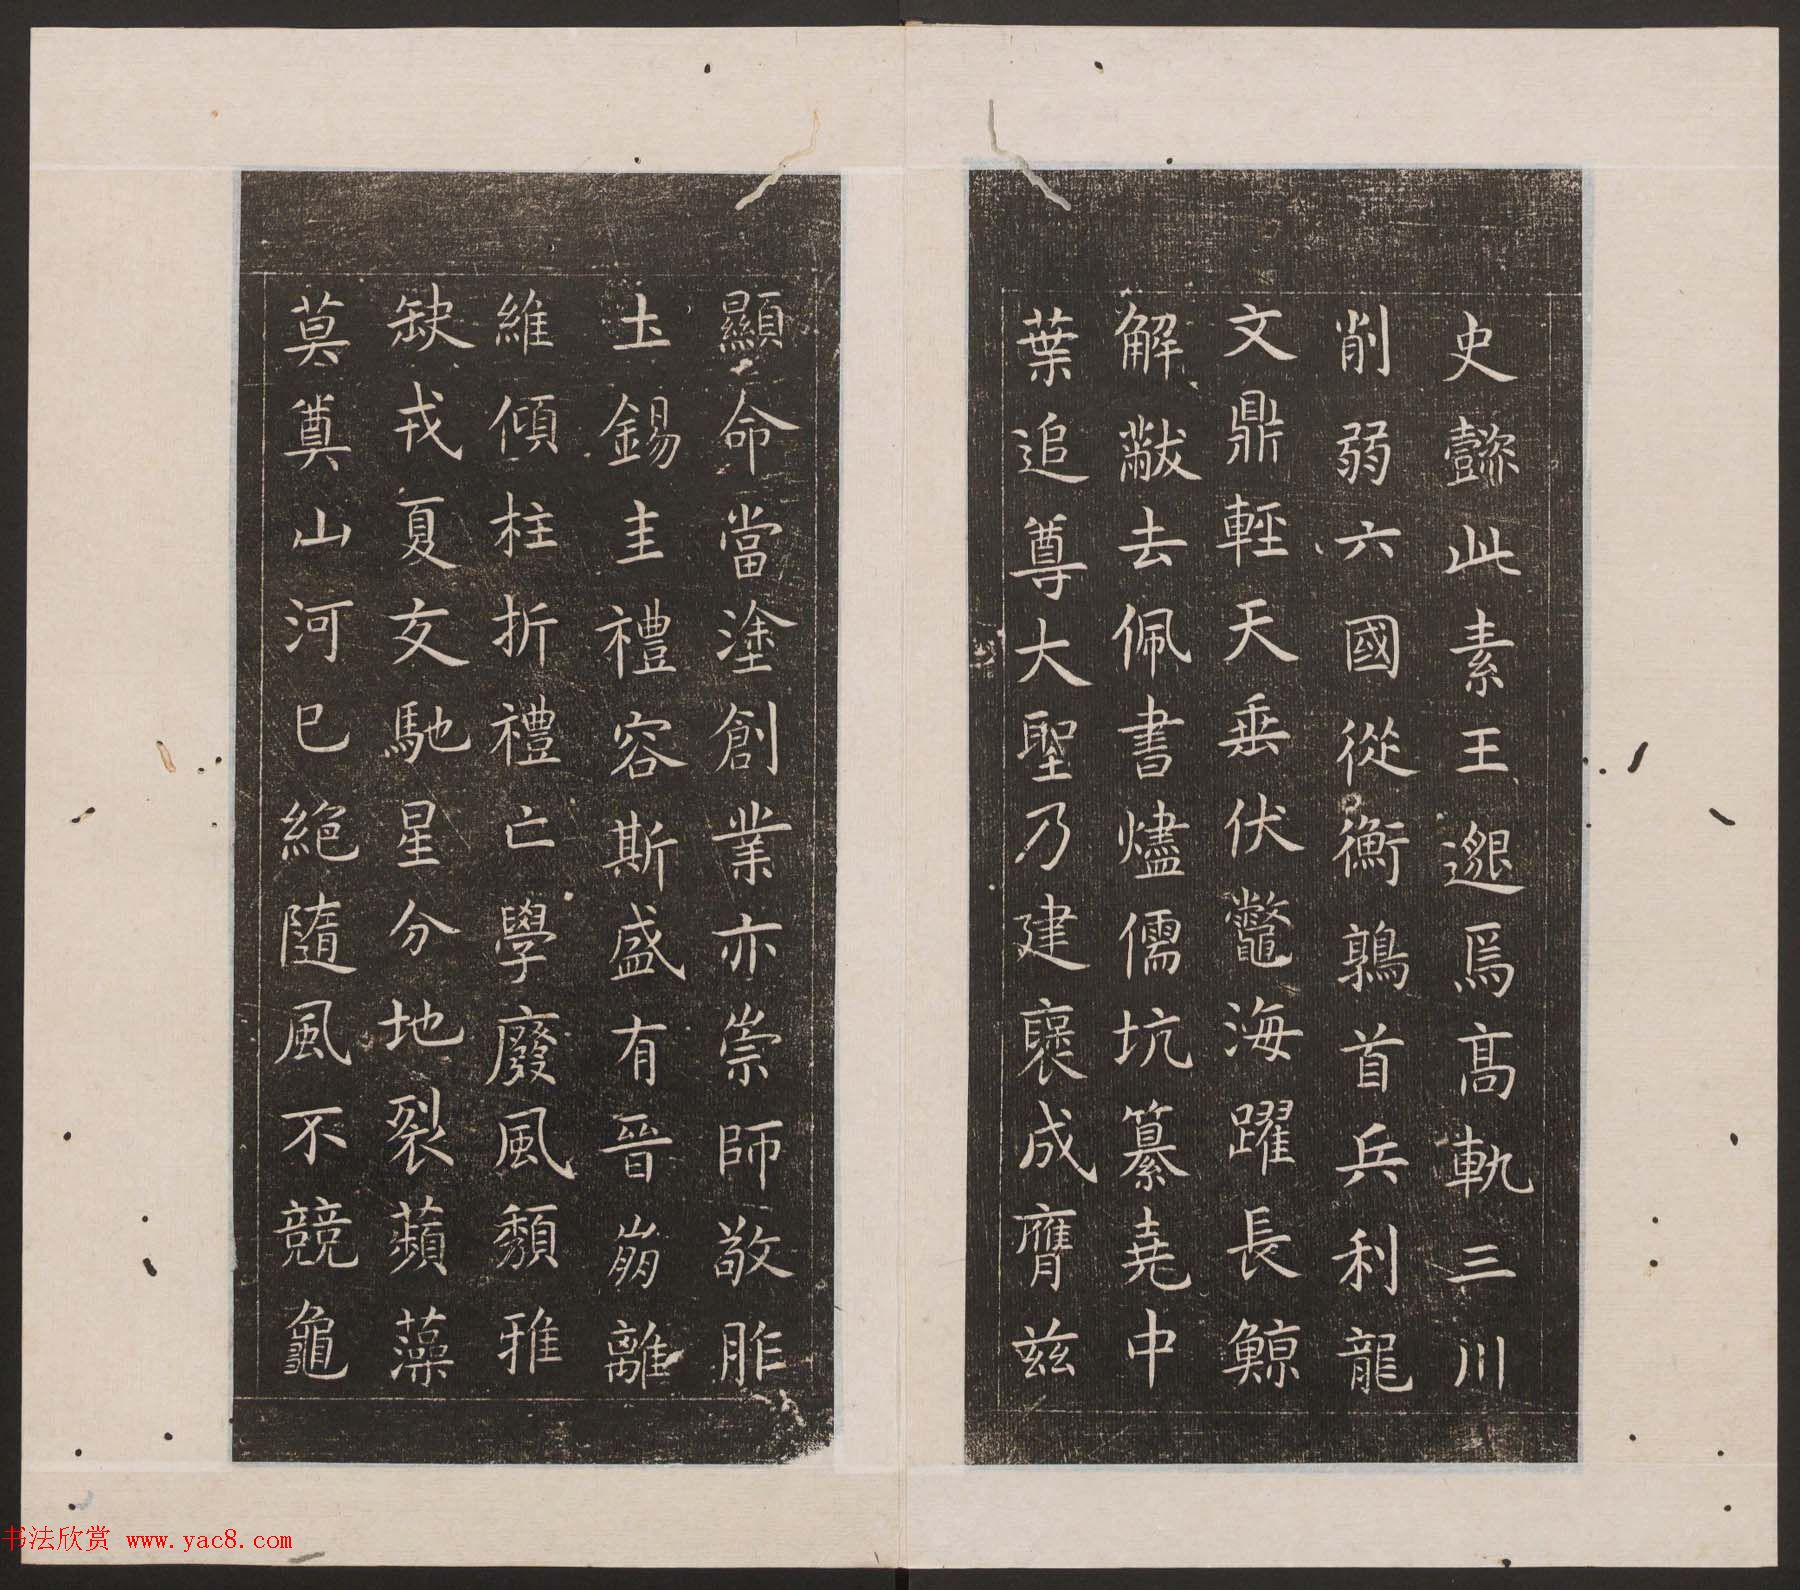 史懿此素王邈焉高軌三川
削弱六國從衡鶉首兵利龍
文鼎輕天垂伏鼈海躍長鯨
解黻去佩書燼儒坑纂堯中
葉追尊大聖乃建褒成膺茲
顯命當塗創業亦崇師敬胙
土錫圭禮容斯盛有晉崩離
維傾柱折禮亡學廢風頹雅
缺戎夏交馳星分地裂蘋藻
莫奠山河已絕隨風不競龜
书法欣赏 www.yac8.com